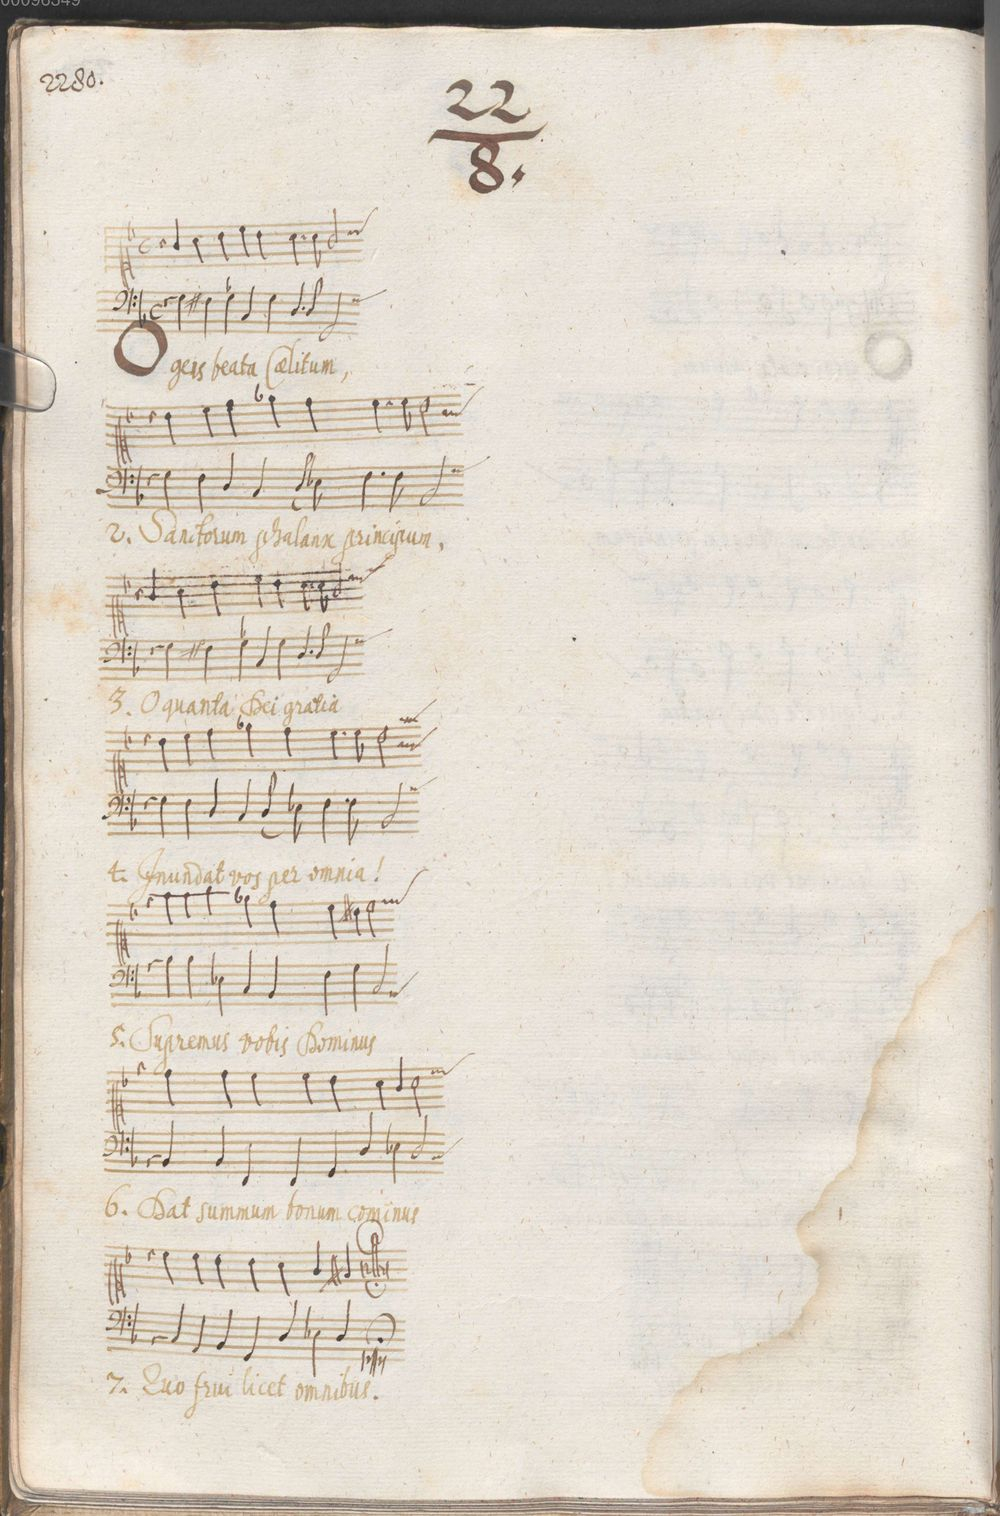 00096549
2280.
22
8.
O gens beata Cælitum,
2. Sanctorum phalanx principum,
3. O quanta Dei gratia
4. Inundat vos per omnia!
5. Supremus vobis Dominus
6. Dat summum bonum cominus
7. Quo frui licet omnibus.